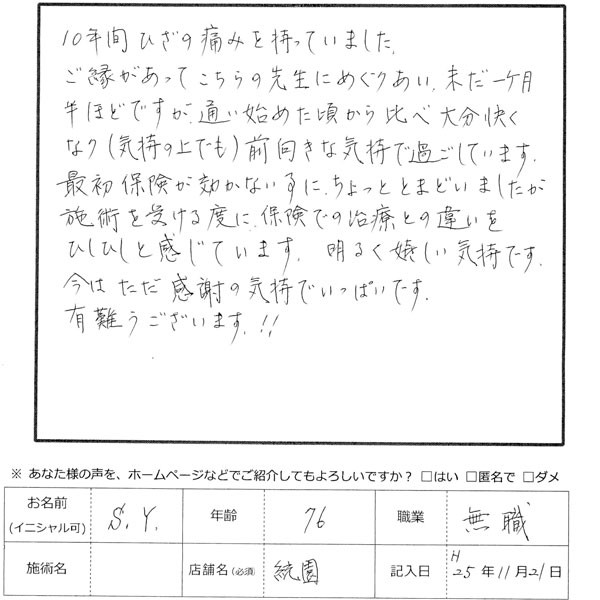 10年間ひざの痛みを持っていました。
ご縁があってこちらの先生にめぐりあい、未だ一ケ月
半ほどですが、通い始めた頃から比べ大分快く
なり(気持の上でも)前向きな気持で過ごしています。
最初保険が効かない事に、ちょっととまどいましたが
施術を受ける度に、保険での治療との違いを
ひしひしと感じています。明るく嬉しい気持です。
今はただ感謝の気持でいっぱいです。
有難うございます。!!
※ あなた様の声を、ホームページなどでご紹介してもよろしいですか? □はい □匿名で □ダメ
お名前 (イニシャル可) S.Y. 年齢 76 職業 無職
施術名 店舗名(必須) 統園 記入日 H25年11月21日